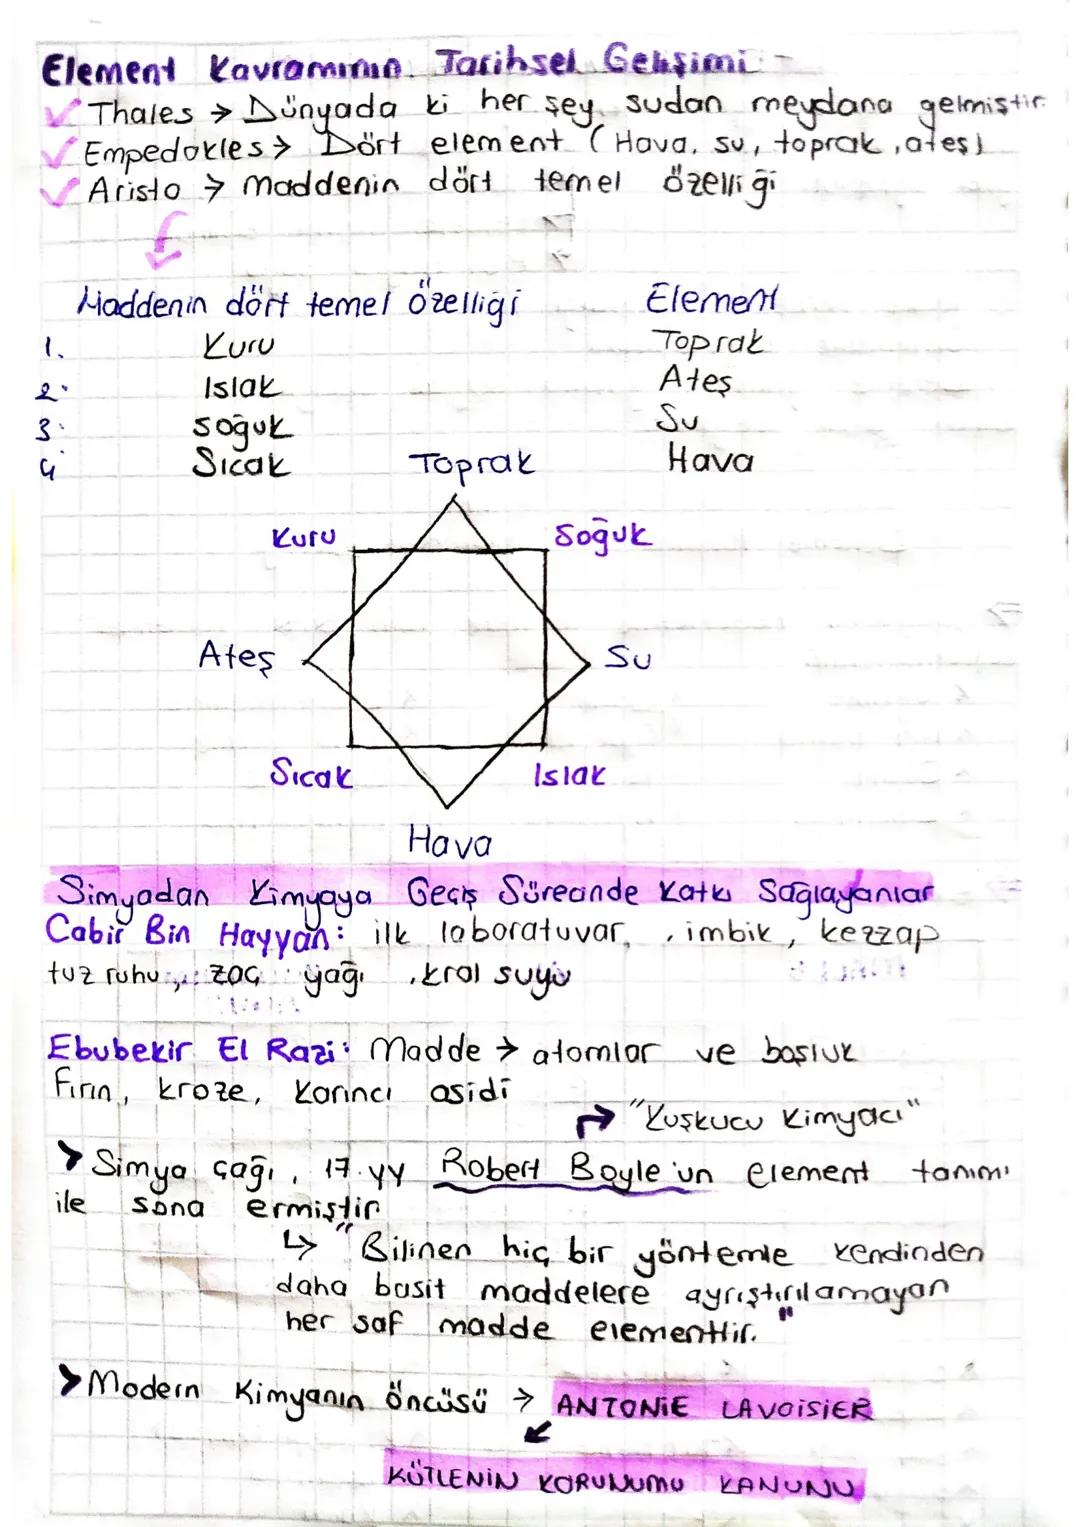 Element Kavramının Tarihsel Gelişimi
Thales → Dünyada ki her şey sudan meydana gelmiştir.
Empedokles → Dört element (Hava, su, toprak, ateş)
Aristo → maddenin dört temel özelliği
Maddenin dört temel özelliği Element
1. Kuru Toprak
2. Islak Ateş
3. soğuk Su
4. Sıcak Hava
Toprak
Kuru Soğuk
Ateş Su
Sıcak Islak
Hava
Simyadan Kimyaya Geçiş Sürecinde Katkı Sağlayanlar
Cabir Bin Hayyan: ilk laboratuvar, imbik, kezzap
tuz ruhu, zaç yağı, kral suyu
Ebubekir El Razi: Madde → atomlar ve boşluk
Fırın, kroze, Karıncı asidi
→ "Kuşkucu Kimyacı"
> Simya çağı, 17.yy Robert Boyle'un element tanımı
ile sona ermiştir
↳ "Bilinen hiç bir yöntemle kendinden
daha basit maddelere ayrıştırılamayan
her saf madde elementtir."
> Modern Kimyanın öncüsü → ANTONİE LAVOİSİER
KÜTLENİN KORUNUMU KANUNU